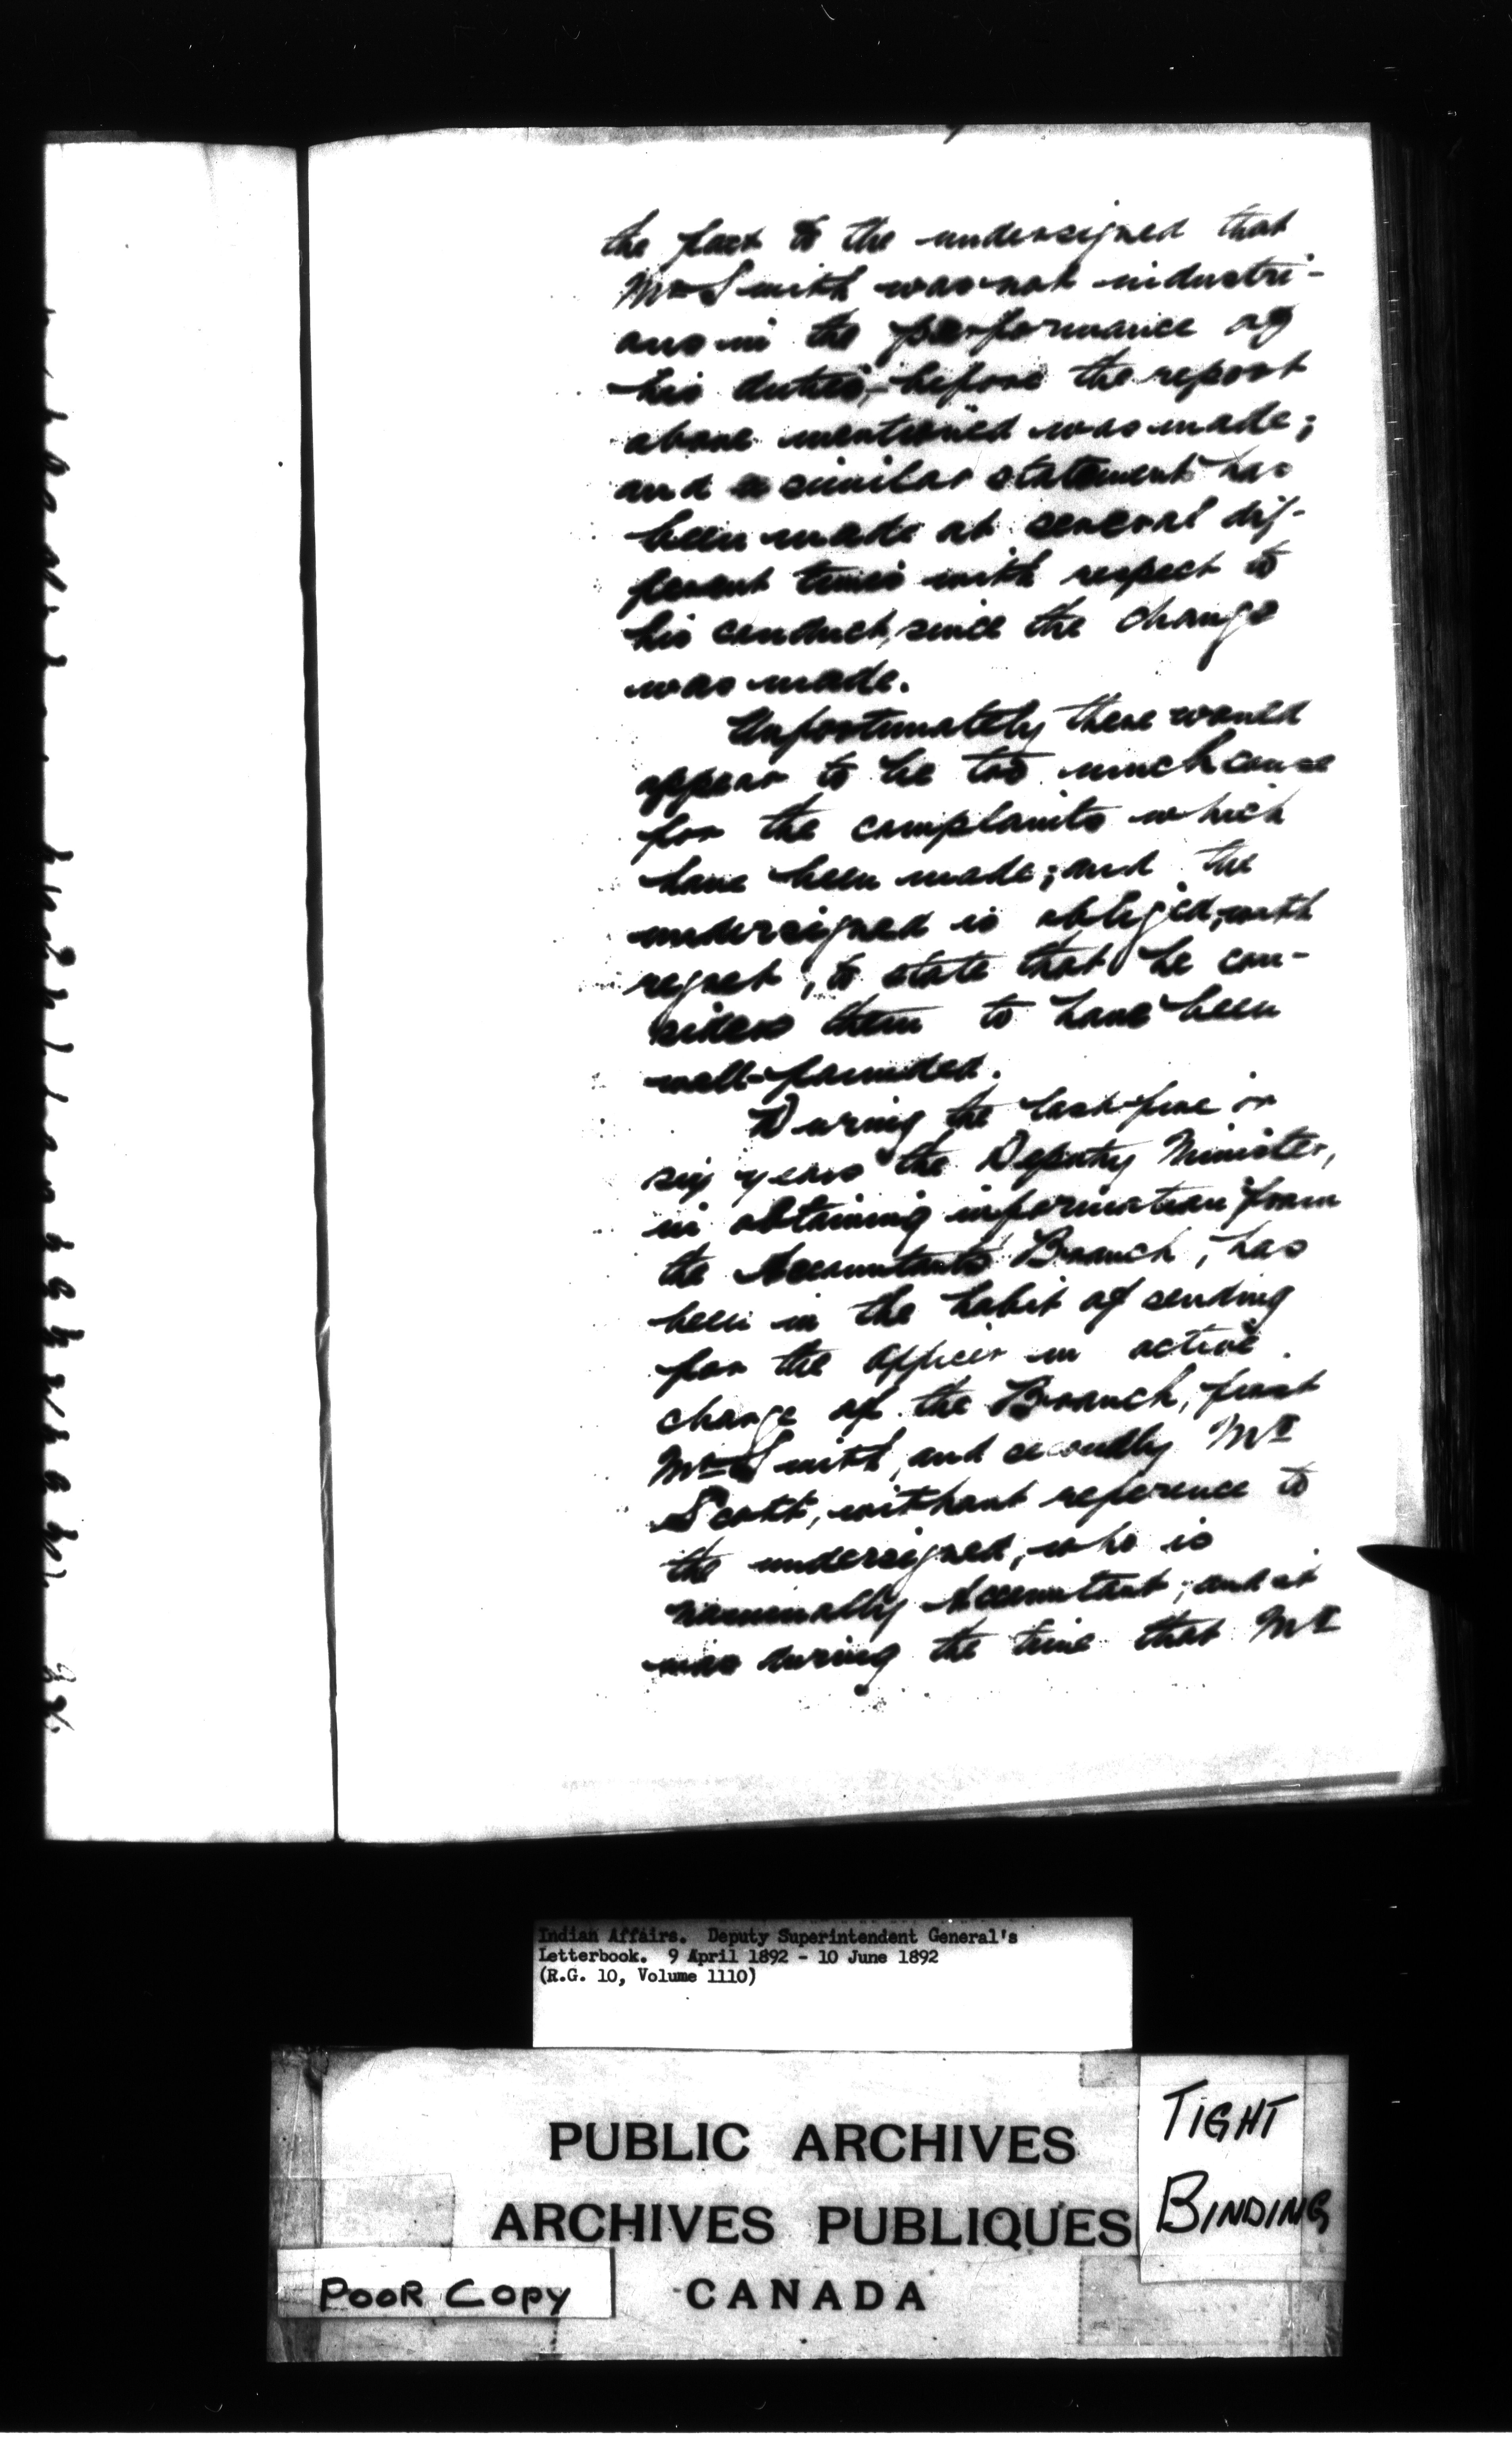 the fact to the undersigned that
Mr Smith was not industri-
ous in the performance of
his duties, before the report
above mentioned was made;
and a similar statement has
been made at several dif-
ferent times with respect to
his conduct, since the change
was made.
Unfortunately there would
appear to be too much cause
for the complaints which
have been made; and the
undersigned is obliged, with
regret, to state that he con-
siders them to have been
well-founded.
During the last five or
six years the Deputy Minister,
in obtaining information from
the Accountant's Branch, has
been in the habit of sending
for the officer in active
charge of the Branch, first
Mr Smith, and secondly Mr
Scott, without reference to
the undersigned, who is
nominally Accountant; and it
was during the time that Mr
Indian Affairs. Deputy Superintendent General's
Letterbook. 9 April 1892 - 10 June 1892
(R.G. 10, Volume 1110)
PUBLIC ARCHIVES
ARCHIVES PUBLIQUES
CANADA
POOR COPY
TIGHT
BINDING